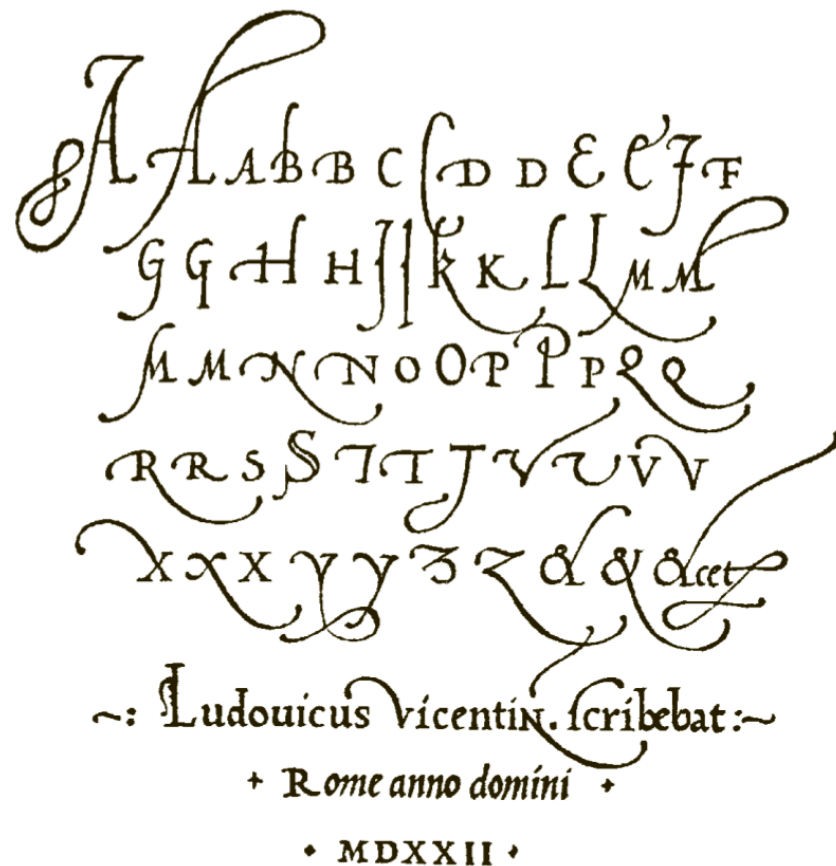 A A A B B C D D E E F F
G G H H J J K K L L M M
M M N N O O P P P Q Q
R R S S T T T V V V V
X X X Y Y Z Z & & &cet
~: Ludouicus vicentiN. ſcribebat :~
+ Rome anno domini +
• MDXXII •